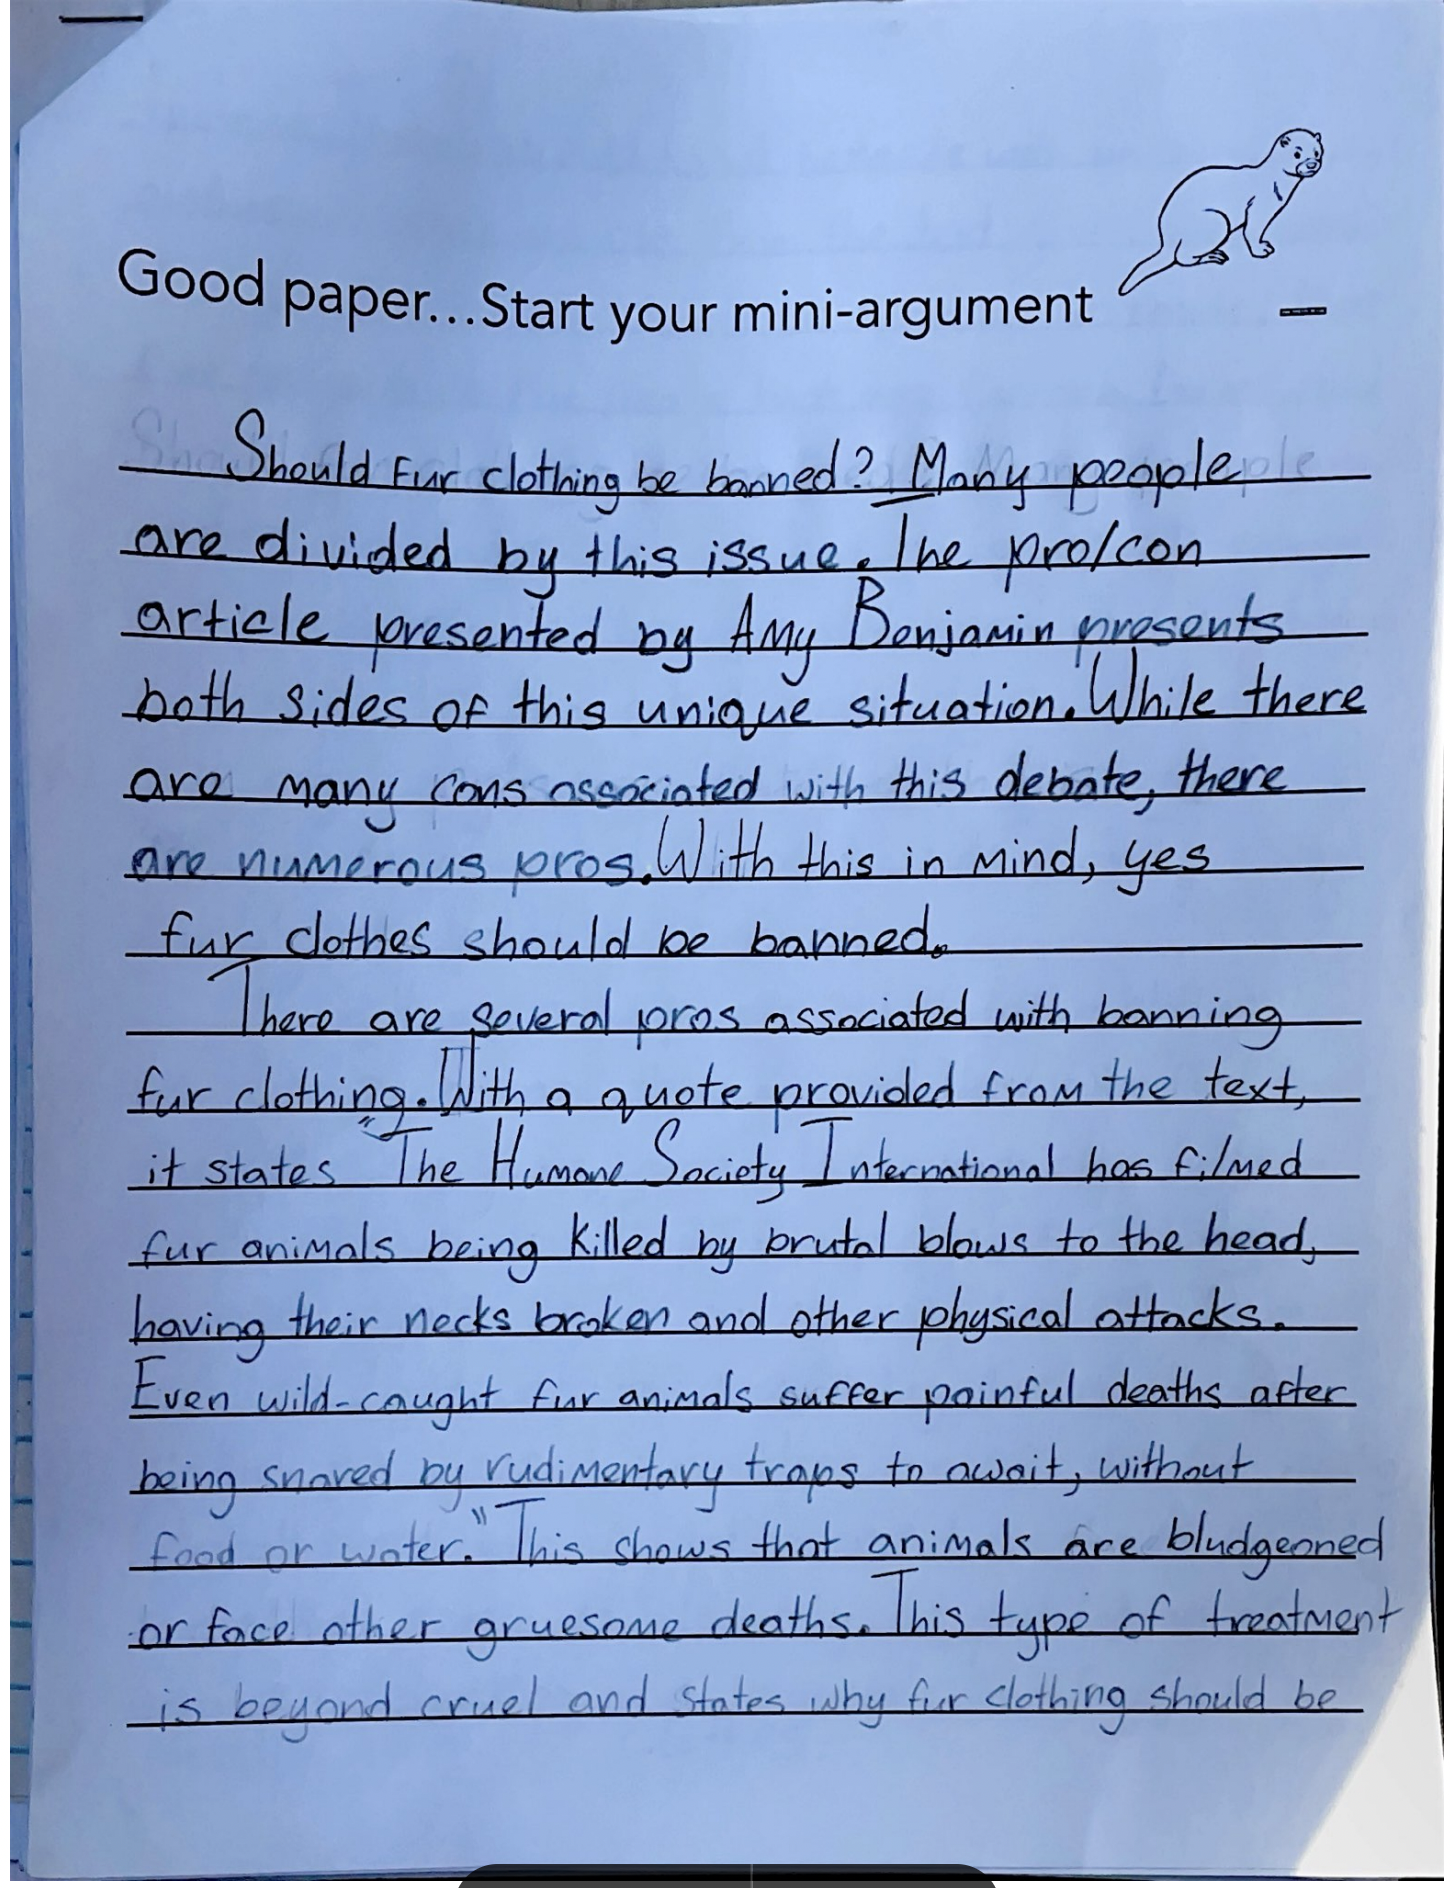 Good paper...Start your mini-argument
Should Fur clothing be banned? Many people
are divided by this issue. The pro/con
article presented by Amy Benjamin presents
both sides of this unique situation. While there
are many cons associated with this debate, there
are numerous pros. With this in mind, yes
fur clothes should be banned.
There are several pros associated with banning
fur clothing. With a quote provided from the text,
it states "The Humane Society International has filmed
fur animals being killed by brutal blows to the head,
having their necks broken and other physical attacks.
Even wild-caught fur animals suffer painful deaths after
being snared by rudimentary traps to await, without
food or water." This shows that animals are bludgeoned
or face other gruesome deaths. This type of treatment
is beyond cruel and states why fur clothing should be